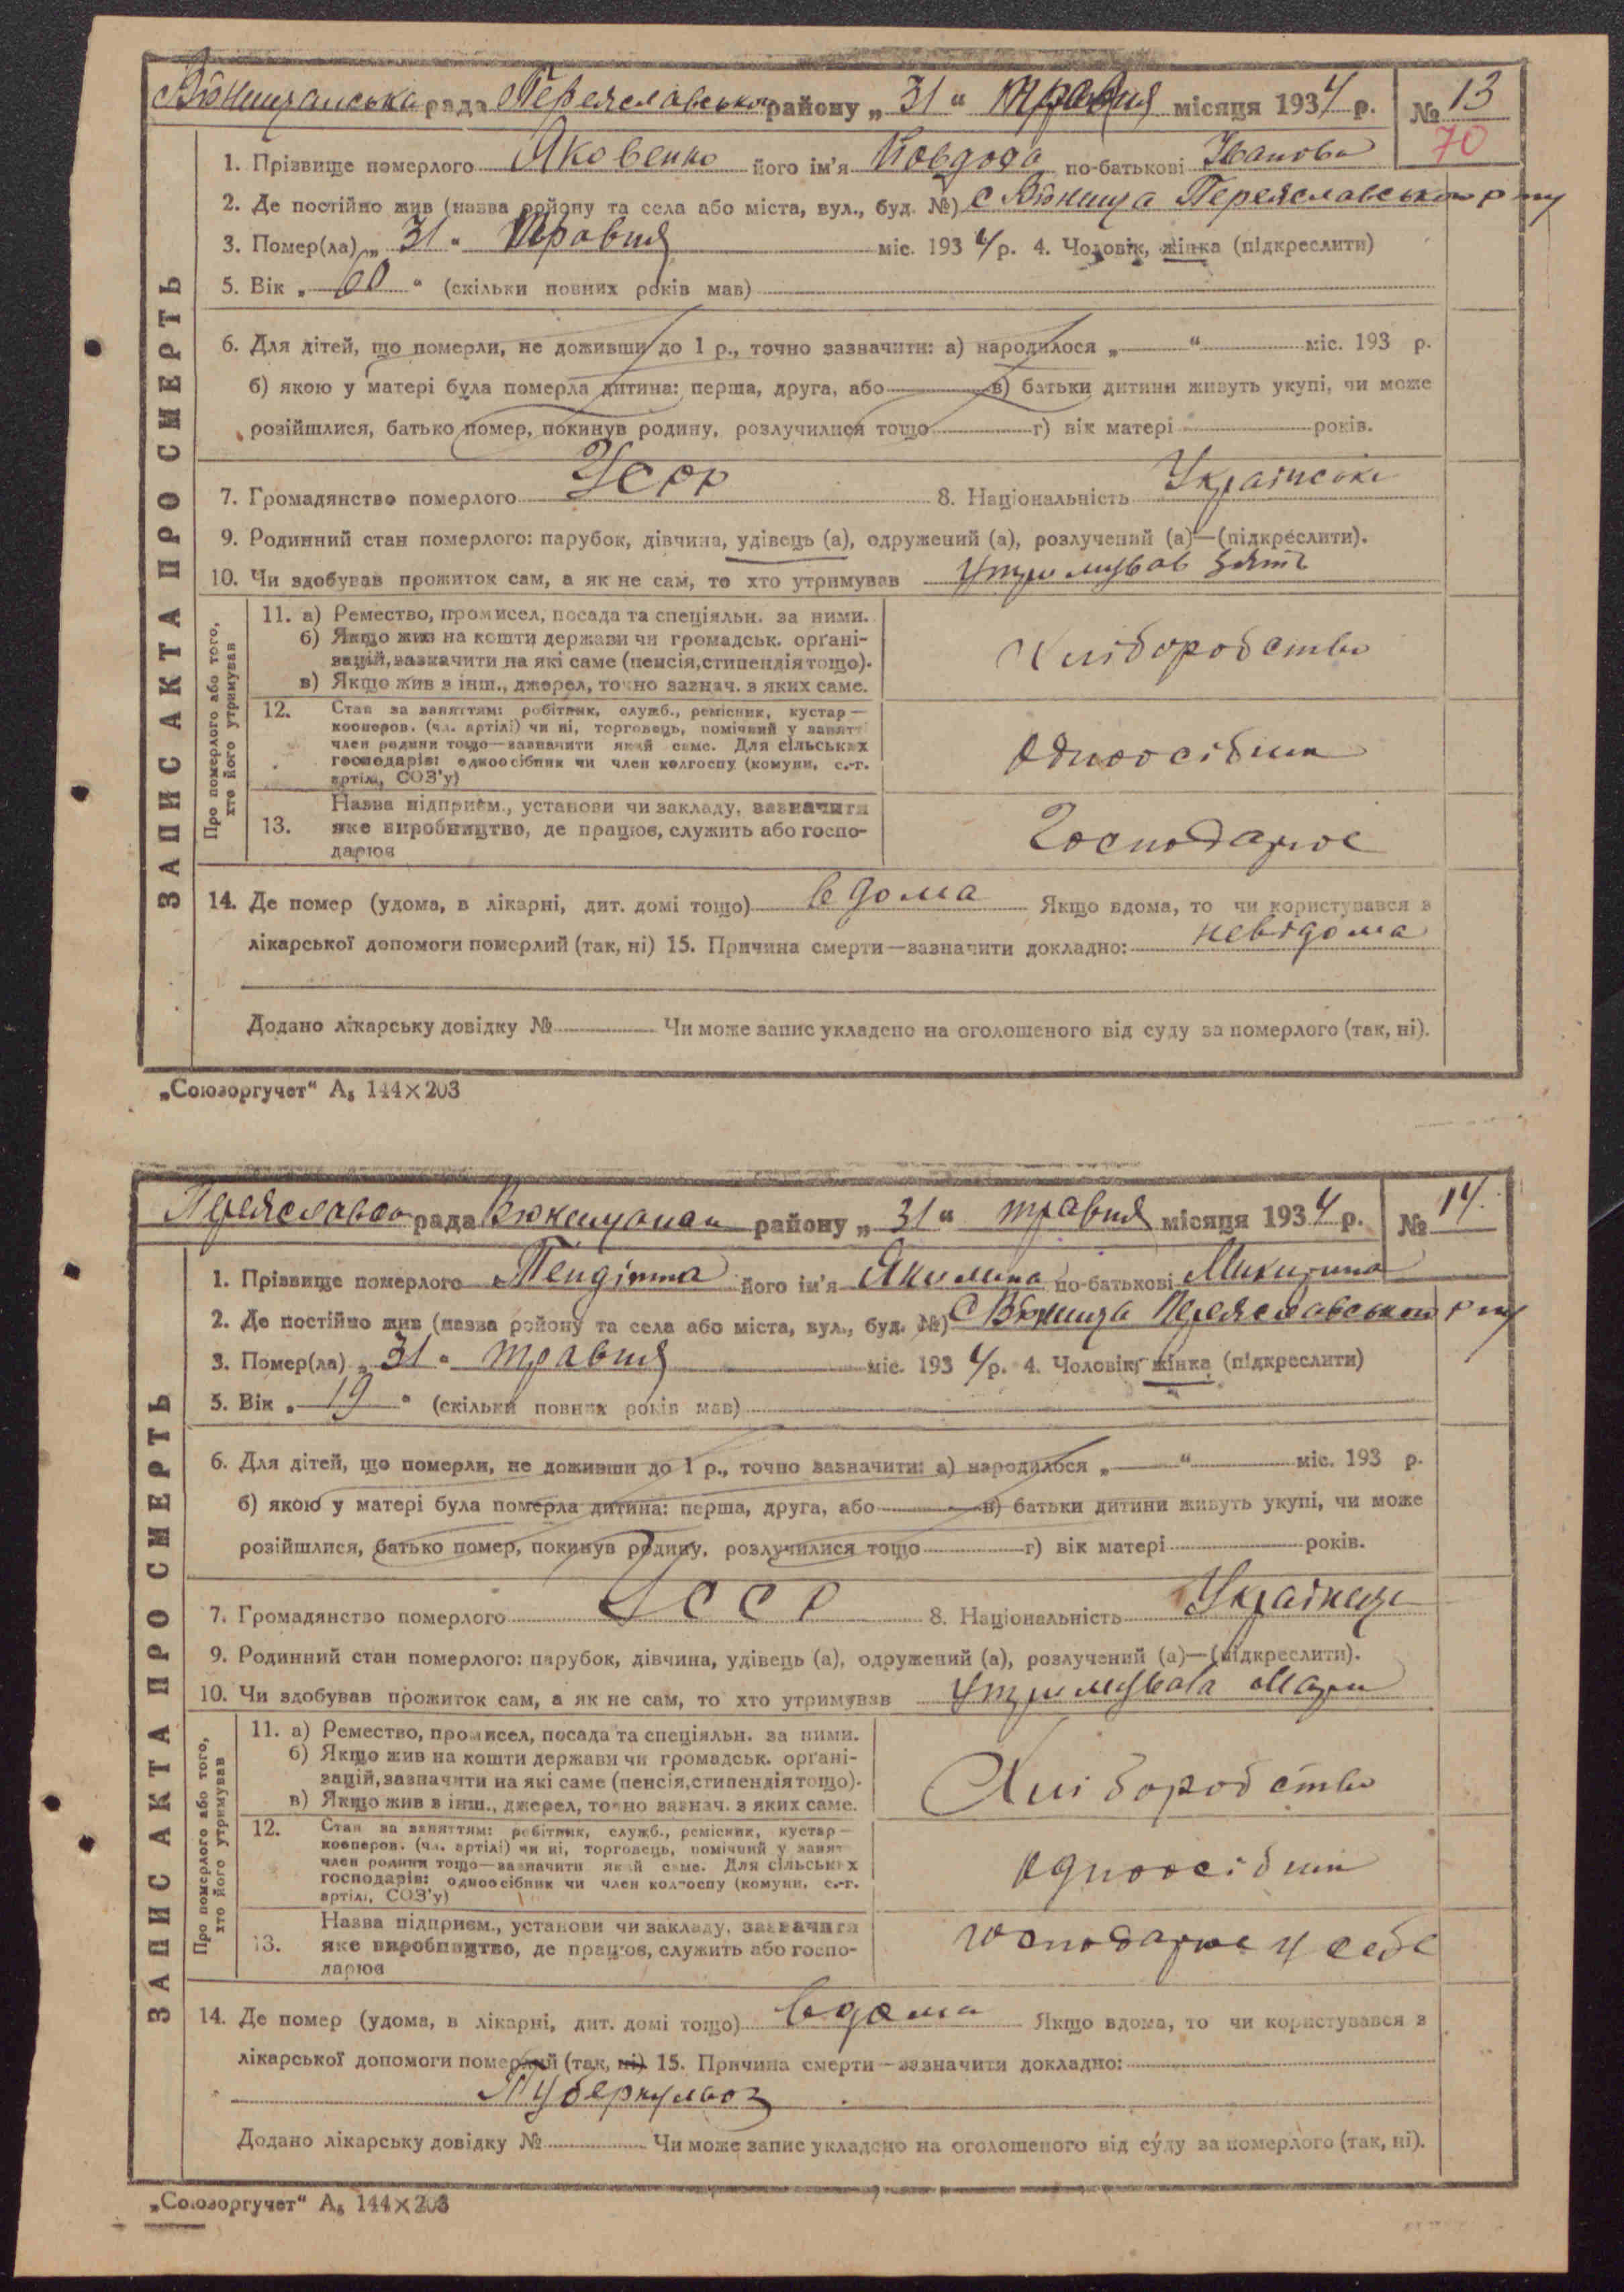 Вюнищанська рада Переяславського району „31“ травня місяця 1934 р. № 13
70
1. Прізвище померлого Яковенко його ім'я Йовдоха по-батькові Іванова
2. Де постійно жив (назва району та села або міста, вул., буд. №) с Вюнища Переяславського р ну
3. Помер(ла) „31“ травня міс. 1934 р. 4. Чоловік, жінка (підкреслити)
5. Вік „60“ (скільки повних років мав)
6. Для дітей, що померли, не доживши до 1 р., точно зазначити: а) народилося „ “ міс. 193 р.
б) якою у матері була померла дитина: перша, друга, або в) батьки дитини живуть укупі, чи може
розійшлися, батько помер, покинув родину, розлучилися тощо г) вік матері років.
7. Громадянство померлого УСРР 8. Національність Українська
9. Родинний стан померлого: парубок, дівчина, удівець (а), одружений (а), розлучений (а)—(підкреслити).
10. Чи здобував прожиток сам, а як не сам, то хто утримував утримував зять
ЗАПИС АКТА ПРО СМЕРТЬ
Про померлого або того, хто його утримував
11. а) Ремество, промисел, посада та спеціяльн. за ними.
б) Якщо жив на кошти держави чи громадськ. органі-
зацій, зазначити на які саме (пенсія, стипендія тощо).
в) Якщо жив з інш., джерел, точно зазнач. з яких саме.
Хліборобство
12. Стан за заняттям: робітник, служб., ремісник, кустар—
кооперов. (чл. артілі) чи ні, торговець, помічний у занятт
член родини тощо—зазначити який саме. Для сільських
господарів: одноосібник чи член колгоспу (комуни, с.-г.
артілі, СОЗ'у)
Одноосібник
13. Назва підприєм., установи чи закладу, зазначити
яке виробництво, де працює, служить або госпо-
дарює
Господарює
14. Де помер (удома, в лікарні, дит. домі тощо) вдома Якщо вдома, то чи користувався з
лікарської допомоги померлий (так, ні) 15. Причина смерти—зазначити докладно: невідома
Додано лікарську довідку № Чи може запис укладено на оголошеного від суду за померлого (так, ні).
„Союзоргучет“ А₅ 144×203
Переяславсь рада Вюнищанск району „31“ травня місяця 1934 р. № 14
1. Прізвище померлого його ім'я Якилина по-батькові Микитина
2. Де постійно жив (назва району та села або міста, вул., буд. №) С Вюнища Переяславського р ну
3. Помер(ла) „31“ травня міс. 1934 р. 4. Чоловік, жінка (підкреслити)
5. Вік „19“ (скільки повних років мав)
6. Для дітей, що померли, не доживши до 1 р., точно зазначити: а) народилося „ “ міс. 193 р.
б) якою у матері була померла дитина: перша, друга, або в) батьки дитини живуть укупі, чи може
розійшлися, батько помер, покинув родину, розлучилися тощо г) вік матері років.
7. Громадянство померлого УССР 8. Національність Українець
9. Родинний стан померлого: парубок, дівчина, удівець (а), одружений (а), розлучений (а)—(підкреслити).
10. Чи здобував прожиток сам, а як не сам, то хто утримував утримувала Мати
ЗАПИС АКТА ПРО СМЕРТЬ
Про померлого або того, хто його утримував
11. а) Ремество, промисел, посада та спеціяльн. за ними.
б) Якщо жив на кошти держави чи громадськ. органі-
зацій, зазначити на які саме (пенсія, стипендія тощо).
в) Якщо жив з інш., джерел, точно зазнач. з яких саме.
Хліборобство
12. Стан за заняттям: робітник, служб., ремісник, кустар—
кооперов. (чл. артілі) чи ні, торговець, помічний у занят
член родини тощо—зазначити який саме. Для сільських
господарів: одноосібник чи член колгоспу (комуни, с.-г.
артілі, СОЗ'у)
Одноосібник
13. Назва підприєм., установи чи закладу, зазначити
яке виробництво, де працює, служить або госпо-
дарює
господарює у себе
14. Де помер (удома, в лікарні, дит. домі тощо) вдома Якщо вдома, то чи користувався з
лікарської допомоги померлий (так, ні) 15. Причина смерти—зазначити докладно:
Туберкульоз
Додано лікарську довідку № Чи може запис укладено на оголошеного від суду за померлого (так, ні).
„Союзоргучет“ А₅ 144×203